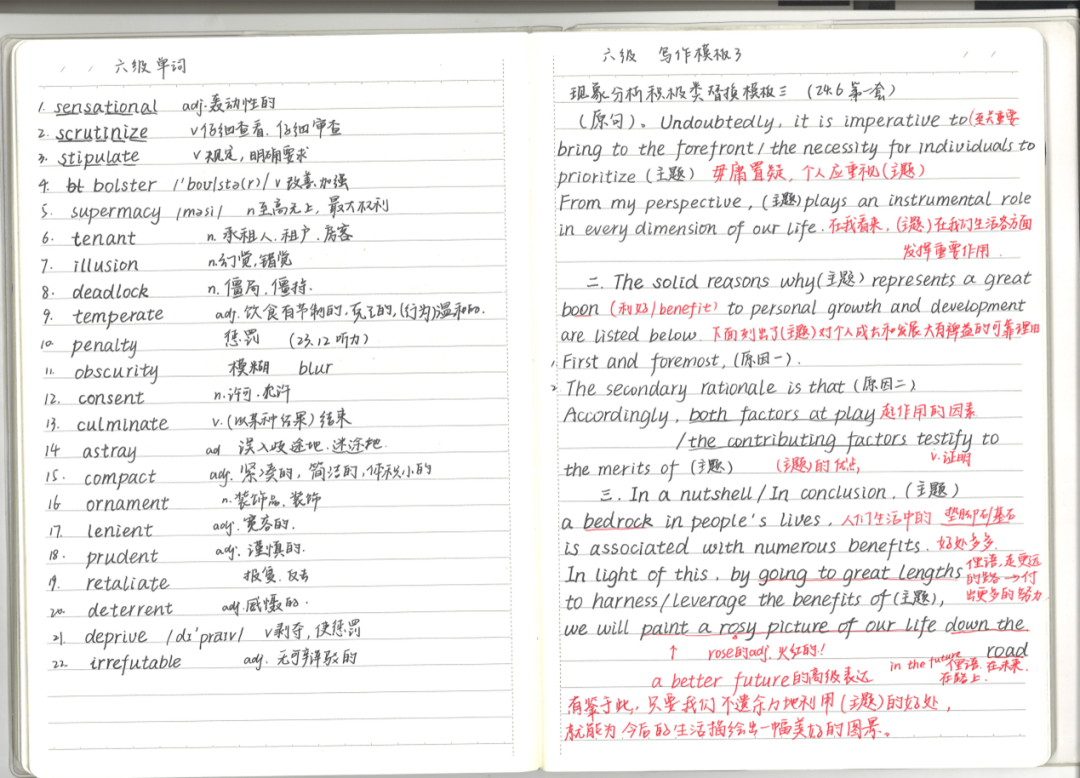 六级单词
1. sensational adj.轰动性的
2. scrutinize v仔细查看.仔细审查
3. stipulate v规定,明确要求
4. bolster /ˈboʊlstə(r)/ v改善.加强
5. supermacy /məsi/ n至高无上,最大权利
6. tenant n.承租人.租户.房客
7. illusion n.幻觉,错觉
8. deadlock n.僵局.僵持.
9. temperate adj.饮食有节制的,克己的,(行为)温和的.
10. penalty 惩罚 (23.12听力)
11. obscurity 模糊 blur
12. consent n.许可.允许
13. culminate v.(以某种结果)结束
14 astray ad 误入歧途地.迷途地.
15. compact adj.紧凑的,简洁的,体积小的
16 ornament n.装饰品,装饰
17. lenient adj.宽容的.
18. prudent adj.谨慎的.
19. retaliate 报复.反击
20. deterrent adj.威慑的.
21. deprive /dɪˈpraɪv/ v剥夺,使惩罚
22. irrefutable adj.无可辩驳的
六级 写作模板3
现象分析积极类替换模板三 (24.6第一套)
(原句)。Undoubtedly, it is imperative to (至关重要
bring to the forefront / the necessity for individuals to
prioritize (主题) 毋庸置疑,个人应重视(主题)
From my perspective, (主题)plays an instrumental role
in every dimension of our life.在我看来,(主题)在我们生活各方面
发挥重要作用.
二. The solid reasons why(主题) represents a great
boon (利好/benefit) to personal growth and development
are listed below.下面列出了(主题)对个人成长和发展大有裨益的可靠理由
1. First and foremost, (原因一).
2 The secondary rationale is that (原因二)
Accordingly, both factors at play起作用的因素
/the contributing factors testify to
the merits of (主题) (主题)的优点, v.证明
三. In a nutshell/In conclusion, (主题)
a bedrock in people's lives,人们生活中的 垫脚石/基石
is associated with numerous benefits.好处多多.
In light of this, by going to great lengths 俚语,走更远的路→付出更多的努力
to harness/leverage the benefits of(主题),
we will paint a rosy picture of our life down the
road
↑ rose的adj.火红的! in the future 俚语.在未来.在路上.
a better future的高级表达
有鉴于此,只要我们不遗余力地利用(主题)的好处,
就能为今后的生活描绘出一幅美好的图景。